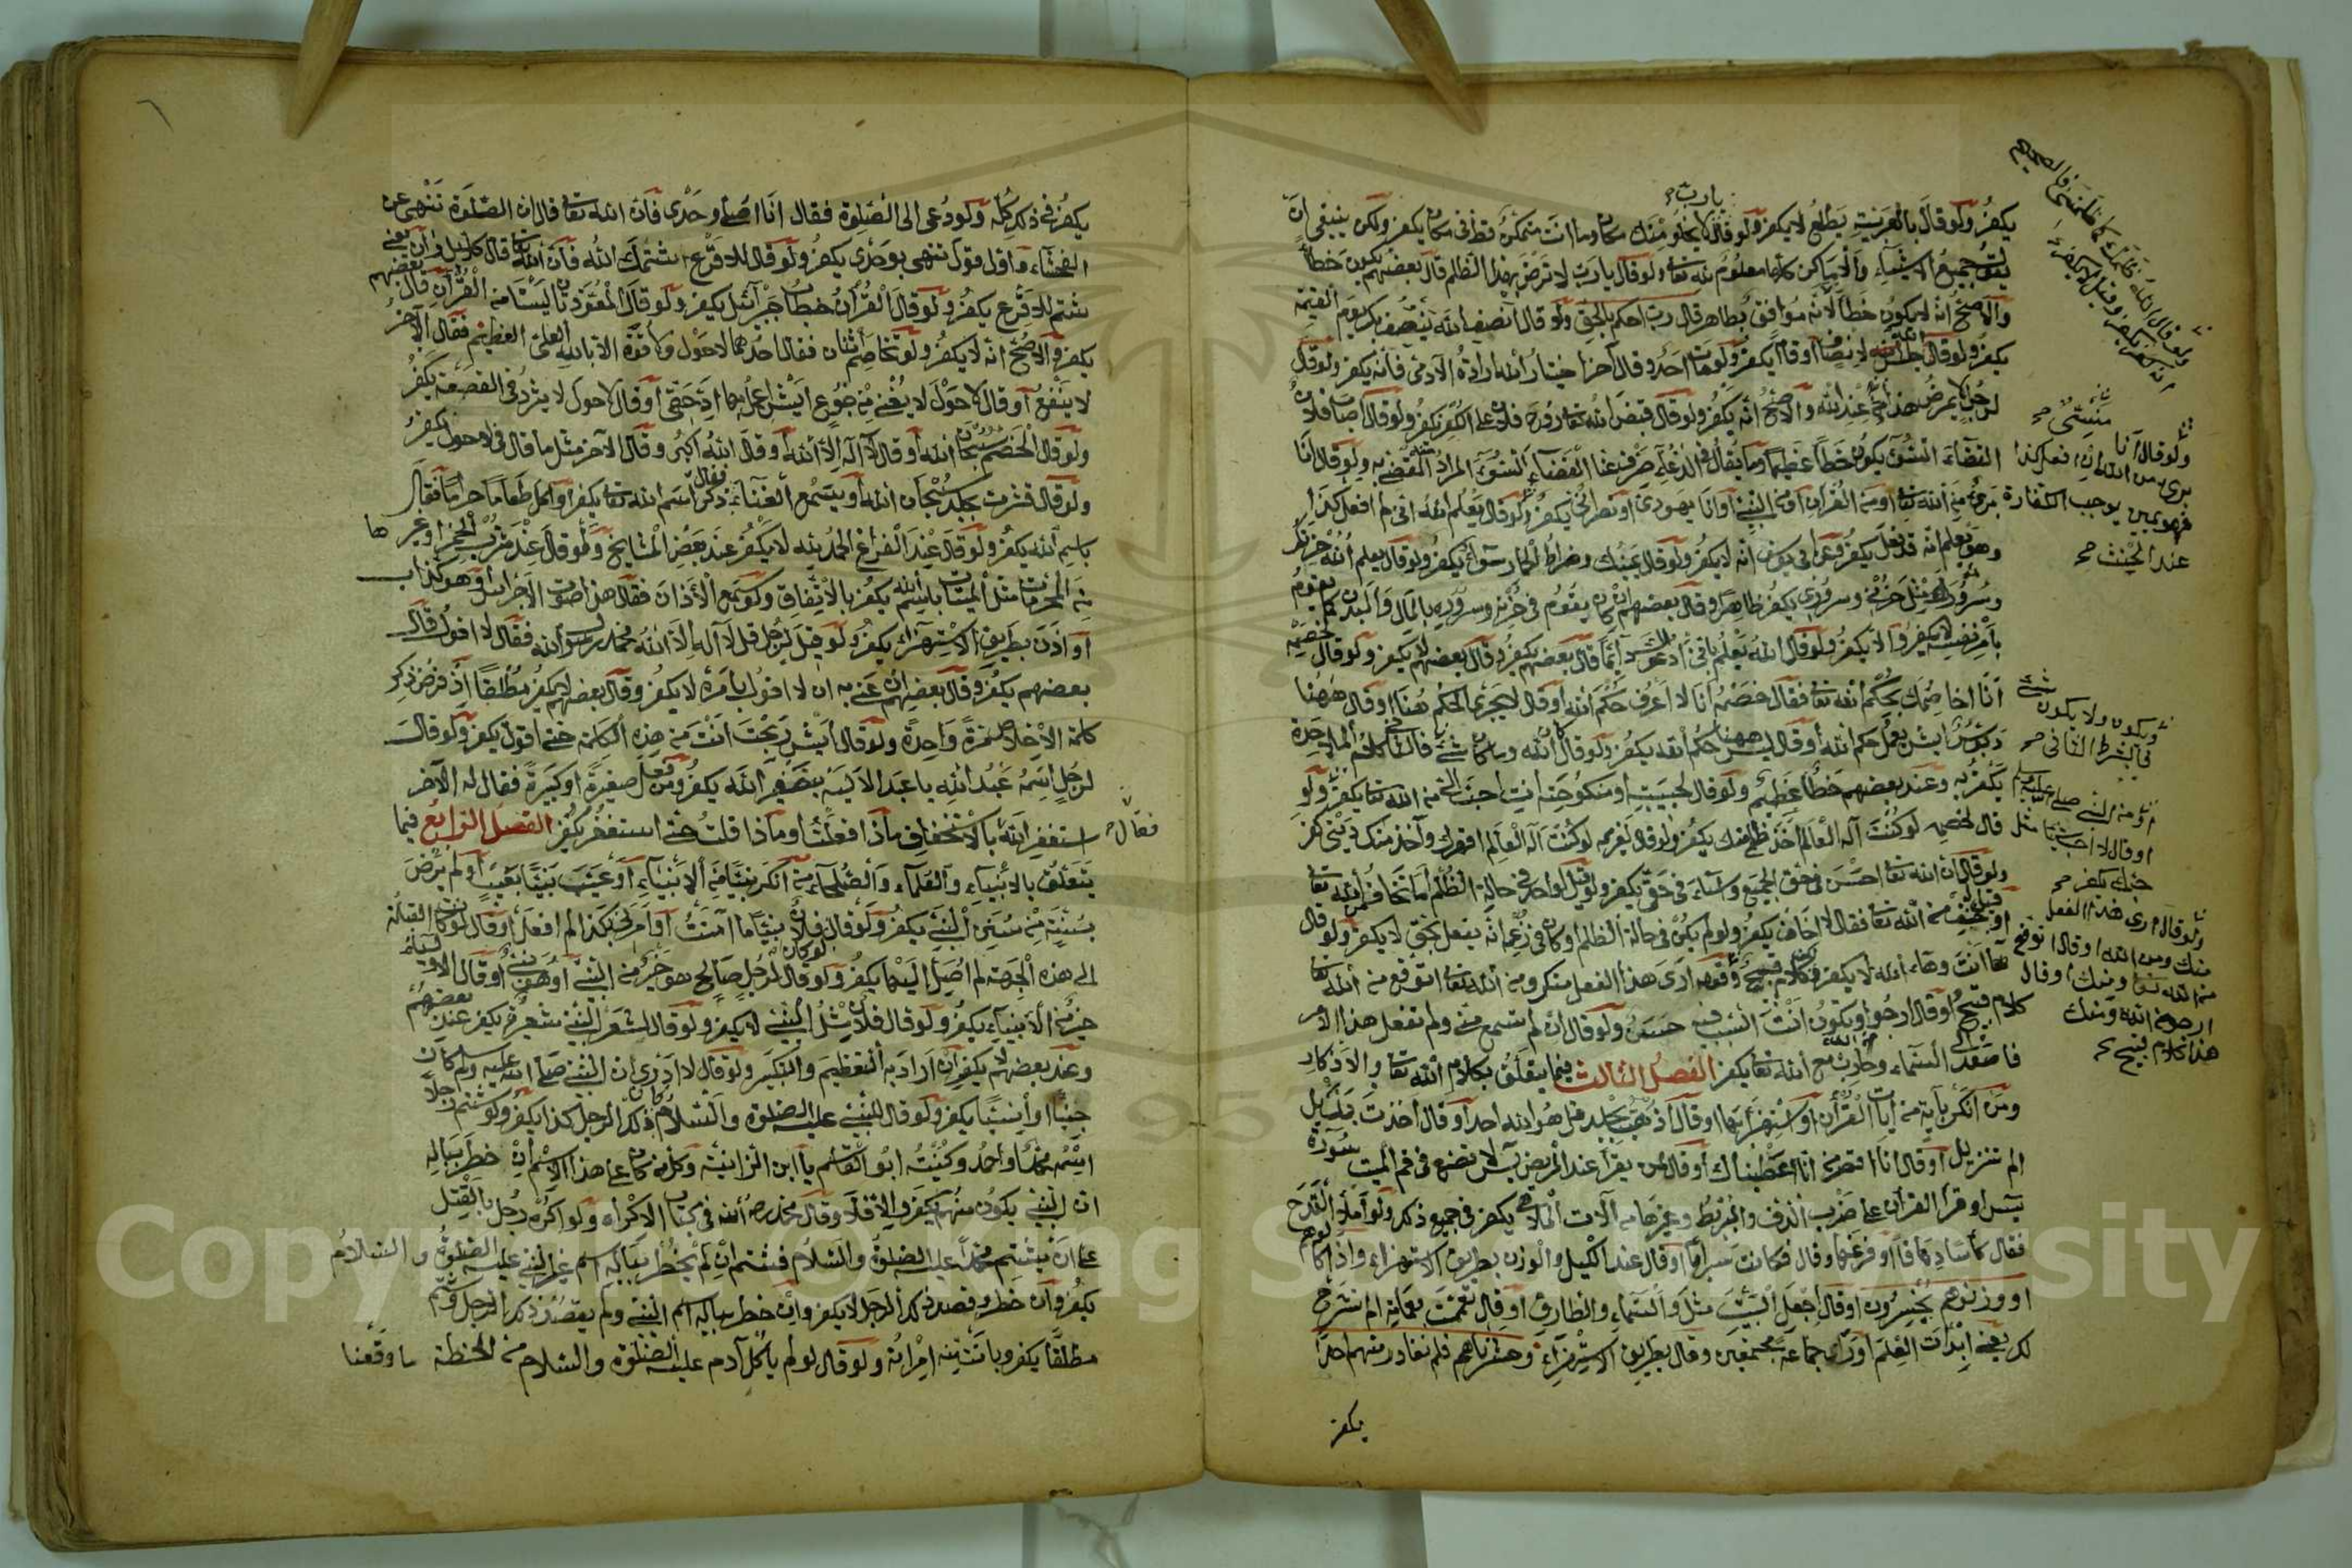 يكفر ولو قال بالعربية يطلع لا يكفر ولو قال لا يخلو منك مكان وما انت متمكن فى مكان يكفر ولكن ينبغى ان
يارب
جميع الاشياء والاماكن كلها معلوم لله تعا ولو قال يارب لا ترض بهذا الظلم قال بعضهم يكون خطأ
والاصح انه لا يكون خطأ لانه موافق بظاهر قال رب احكم بالحق ولو قال انصف الله ينصف بك يوم القيمة
يكفر ولو قال جلس الله لانصاف او قام يكفر ولو مات احد وقال آخر اختيار الله ارادة الآدمى فانه يكفر ولو قال
لرجل لا يمرض هذا عند الله والاصح انه يكفر ولو قال قبض الله تعا روح فلان على الكفر يكفر ولو قال اصاب فلان
القضاء السوء يكون خطأ عظيما وما يقال فى الدعاء اصرف عنا القضاء السوء المراد المقضى به ولو قال انا
برئ من الله تعا او من القرآن او من النبى او انا يهودى او نصرانى يكفر ولو قال يعلم الله انى لم افعل كذا
وهو يعلم انه قد فعل يكفر وعن ابى يوسف انه لا يكفر ولو قال يمينك وضراط الحمار سواء يكفر ولو قال يعلم الله حزنك
وسرورك مثل حزنى وسرورى يكفر ظاهرا وقال بعضهم ان كان يقوم فى حزنه وسروره بالمال والبدن كما يقوم
بامر نفسه لا يكفر والا يكفر ولو قال الله يعلم بانى ادعو لك دائما قال بعضهم يكفر وقال بعضهم لا يكفر ولو قال خصمه
انا اخاصمك بحكم الله تعا فقال خصمه انا لا اعرف حكم الله او قال لا يجرى الحكم هنا او قال ههنا
دبوس ايش يعمل حكم الله او قال ليس ههنا حكم الله يكفر ولو قال كان الله وما كان شئ فالثانى كلام الملاحدة
يكفر به وعند بعضهم خطأ عظيم ولو قال لحبيبته او منكوحته انت احب الى من الله تعا يكفر ولو
قال لخصمه لو كنت آله العالم اخذ ظلمى منك يكفر ولو قال لغريمه لو كنت آله العالم اقهرك وآخذ منك دينى كفر
ولو قال ان الله تعا احسن فى حق الجميع واساء فى حقى يكفر ولو قيل لواحد فى حالة الظلم اما تخاف من الله تعا
او قيل خف من الله تعا فقال لا اخاف يكفر ولو لم يكن فى حالة الظلم او كان فى زعمه انه يفعل بحق لا يكفر ولو قال
ها انت وها الله لا يكفر لكنه كلام قبيح وقوله ارى هذا الفعل منك ومن الله تعا اتوقع من الله تعا
كلام قبيح او قال ارجو ويكون انت السبب فيه حسن ولو قال ان لم تسمع منى ولم تفعل هذا الامر
فاصعد الى السماء وحارب مع الله تعا يكفر الفصل الثالث فيما يتعلق بكلام الله تعا والاذكار
ومن انكر بآية من آيات القرآن او استهزأ بها او قال اذهب جلد قل هو الله احد او قال اخذت بذيل
الم تنزيل او قال انا اقصر من انا اعطيناك او قال لمن يقرأ عند المريض يس لا تضع فى فم الميت سورة
يس او قرأ القرآن على ضرب الدف والبربط وغيرها من آلات الملاهى يكفر فى جميع ذلك ولو املأ القدح
فقال كأسا دهاقا او فرغها وقال فكانت سرابا او قال عند الكيل والوزن بطريق الاستهزاء واذا كالوهم
او وزنوهم يخسرون او قال اجعل البيت مثل والسماء والطارق او قال تعممت بعمامة الم نشرح
لك يعنى ابدأت العلم او رأى جماعة مجتمعين وقال بطريق الاستهزاء وحشرناهم فلم نغادر منهم احدا
يكفر
ولو قال الله
انه كفر يكفر وقيل لا يكفر
ولو قال انا
برئ من الله ان افعل كذا
فهو يمين يوجب الكفارة
عند الحنث صح
ويكون ولا يكون شئ
فى الشرط الثانى صح
او من النبى صلى الله عليه وسلم
او قال لا احب شيئا مثل
حبك يكفر صح
ولو قال ارى هذا الفعل
منك ومن الله او قال اتوقع
من الله تعا ومنك او قال
ارجو من الله ومنك
هذا كلام قبيح صح
يكفر فى ذلك كله ولو دعى الى الصلوة فقال انا اصلى وحدى فان الله تعا قال ان الصلوة تنهى عن
الفحشاء واقول قول تنهى بوحدى يكفر ولو قال للاقرع شتمك الله فان الله تعا قال كلا بل ران يعنى
شتم للاقرع يكفر ولو قال القرآن خطاب جبرائيل يكفر ولو قال المعوذتان ليستا من القرآن قال بعضهم
يكفر والاصح انه لا يكفر ولو تخاصم اثنان فقال احدهما لا حول ولا قوة الا بالله العلى العظيم فقال الآخر
لا ينفع او قال لا حول لا يغنى من جوع ايش اعمل بها او قال لا حول لا يثرد فى القصعة يكفر
ولو قال الخصم سبحان الله او قال لا آله الا الله او قال الله اكبر وقال الآخر مثل ما قال فى لا حول يكفر
ولو قال قشرت جلد سبحان الله او يسمع الغناء فقال ذكر اسم الله تعا يكفر او اكل طعاما حراما فقال
باسم الله يكفر ولو قال عند الفراغ الحمد لله لا يكفر عند بعض المشايخ ولو قال عند شرب الخمر او غيرها
من المحرمات مثل الميتات باسم الله يكفر بالاتفاق ولو سمع الاذان فقال هذا صوت الاجراس او هو كذاب
او اذن بطريق الاستهزاء يكفر ولو قيل لرجل قل لا آله الا الله محمد رسول الله فقال لا اقول قال
بعضهم يكفر وقال بعضهم ان عنى به ان لا اقول بامره لا يكفر وقال بعضهم لا يكفر مطلقا اذ فرض ذكر
كلمة الاخلاص مرة واحدة ولو قال ايش ربحت انت من هذه الكلمة حتى اقول يكفر ولو قال
لرجل اسمه عبد الله يا عبد الاليه بتصغير الله يكفر ومن فعل صغيرة او كبيرة فقال له الآخر
استغفر الله بالاستخفاف ماذا فعلت او ماذا قلت حتى استغفر يكفر الفصل الرابع فيما
فقال
يتعلق بالانبياء والعلماء والصلحاء من انكر نبيا من الانبياء او عيب نبيا بعيب او لم يرض
بسنة من سنن النبى يكفر ولو قال لو كان فلان نبيا ما آمنت او امرنى بكذا لم افعل او قال لو كانت القبلة
الى هذه الجهة لم اصل اليها يكفر ولو قال لرجل صالح هو خير من النبى او هو نبى او قال الاولياء
خير من الانبياء يكفر ولو قال فلان مثل النبى لا يكفر ولو قال لشعر النبى شعيرة يكفر عند بعضهم
وعند بعضهم لا يكفر ان اراد به التعظيم والتكبير ولو قال لا ادرى ان النبى صلى الله عليه وسلم كان
جنيا او انسيا يكفر ولو قال للنبى عليه الصلوة والسلام ذلك الرجل كذا يكفر ولو شتم رجلا
اسمه محمد او احمد وكنيته ابو القاسم يا ابن الزانية وكل من كان على هذا الاسم ان خطر بباله
ان النبى يكون منهم يكفر والا فلا وقال محمد رحمه الله فى كتاب الاكراه ولو اكره رجل بالقتل
على ان يشتم محمدا عليه الصلوة والسلام فشتم ان لم يخطر بباله اسم غير النبى عليه الصلوة والسلام
يكفر وان خطر وقصد ذلك الرجل لا يكفر وان خطر بباله اسم النبى ولم يقصد ذلك الرجل وشتم
مطلقا يكفر وبانت منه امرأته ولو قال لو لم يأكل آدم عليه الصلوة والسلام من الحنطة ما وقعنا